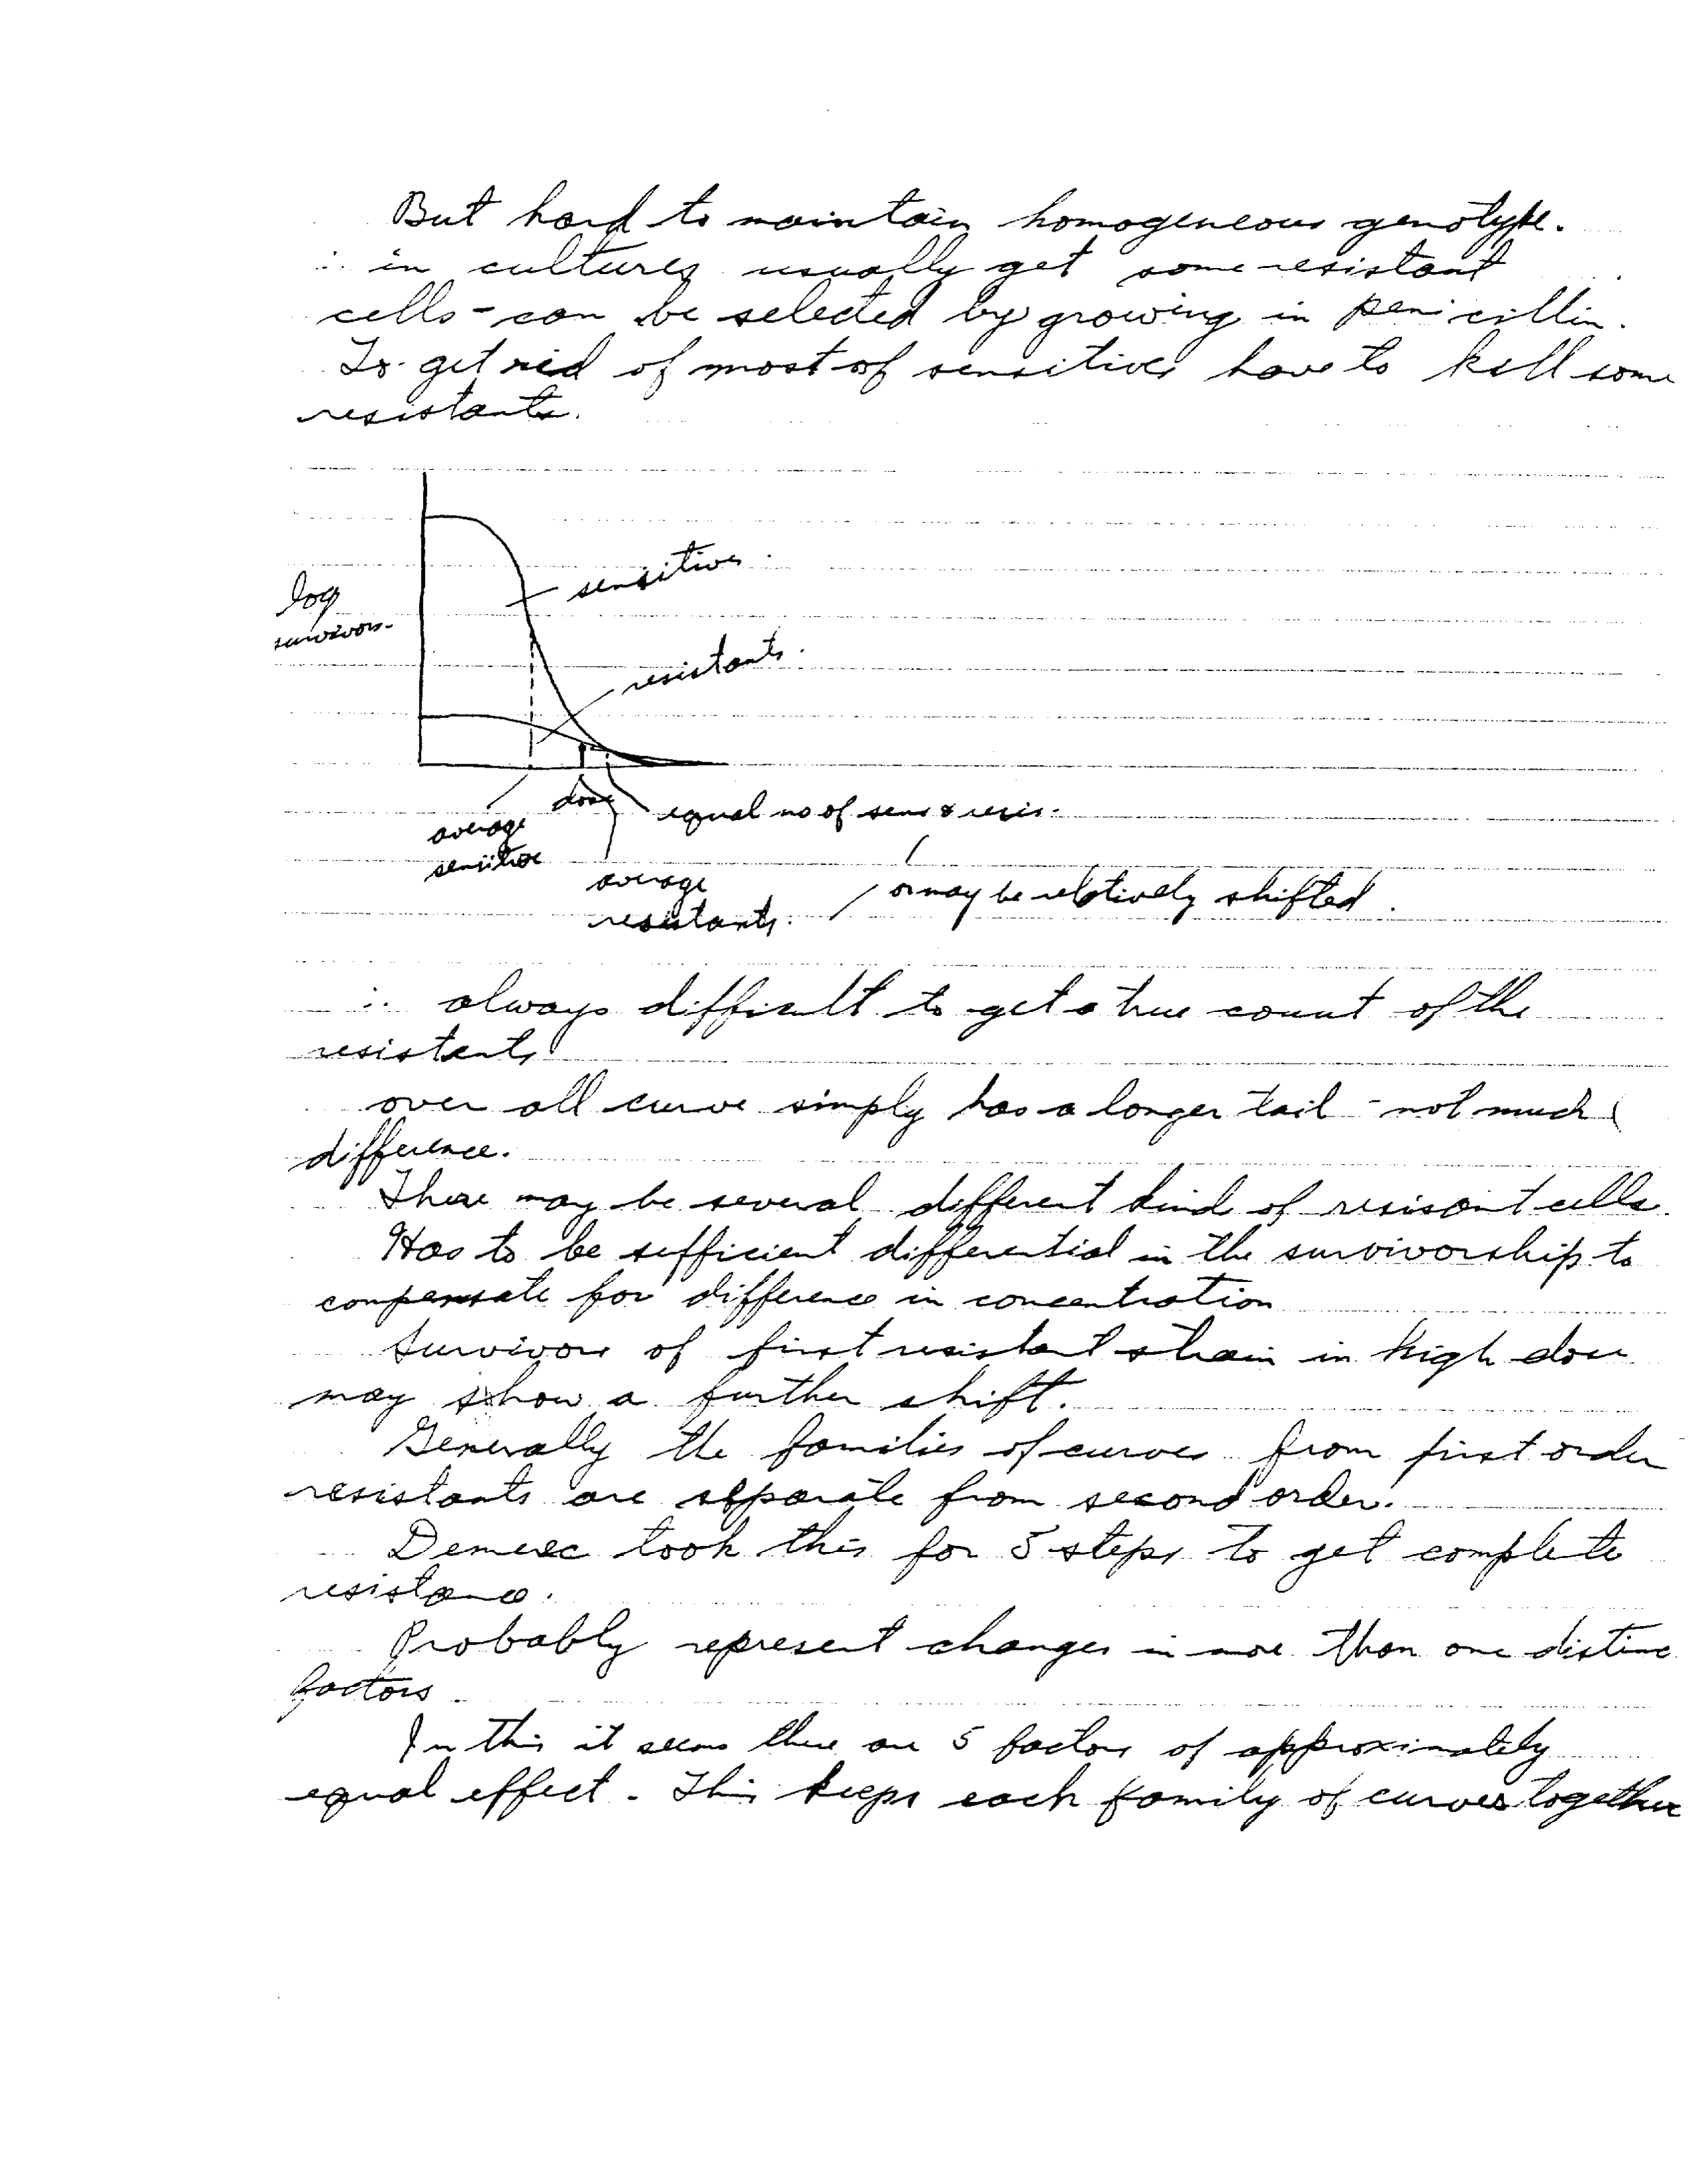 But hard to maintain homogeneous genotype.
∴ in cultures usually get some resistant
cells - can be selected by growing in penicillin.
To get rid of most of sensitives have to kill some
resistants.
sensitives
log
survivors.
resistants.
dose
equal no of sens & resis.
average
sensitive
average
resistants.
or may be relatively shifted.
∴ always difficult to get a true count of the
resistants
over all curve simply has a longer tail - not much
difference.
There may be several different kind of resisant cells.
Has to be sufficient differential in the survivorship to
compensate for difference in concentration
Survivors of first resistant strain in high dose
may show a further shift.
Generally the families of curves from first order
resistants are separate from second order.
Demerec took this for 5 steps to get complete
resistance.
Probably represent changes in more than one distinc
factors.
In this it seems there are 5 factors of approximately
equal effect. This keeps each family of curves together